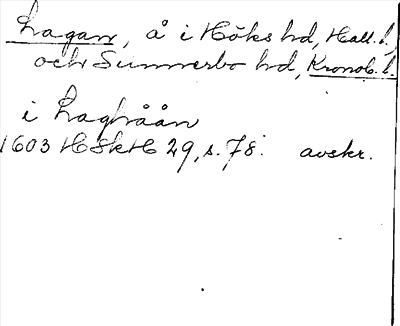 Lagan, å i Höks hd, Hall. l.,
och Sunnerbo hd, Kronob. l.
i Laghåån
1603 HSkH 29, s. 78. avskr.